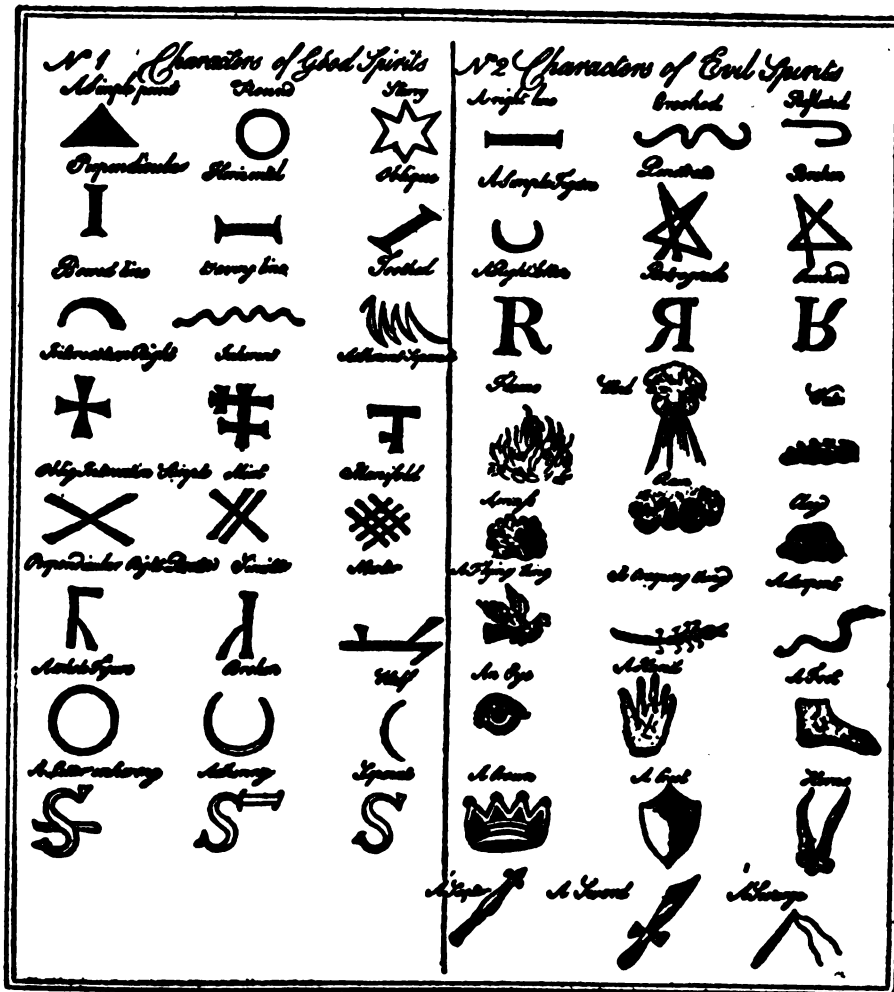 Nº 1 Characters of Good Spirits
A Simple point Round Starry
Perpendicular Horizontal Oblique
Bowed line Waveing line Toothed
Intersection Right Inherent Adherent Separate
Obliq Intersection Simple Mixt Manifold
Perpendicular Right Dexter Sinister
A whole Figure Broken Half
A Letter inhering Adhering Separate
S S S
Nº 2 Characters of Evil Spirits
A right line Crooked Reflected
A Simple Figure Penetrate Broken
A Right Letter Retrograde
R R R
Flame Wind Water
A mass Rain Clay
A Flying thing A creeping thing A Serpent
An Eye A Hand A Foot
A Crown A Crest Horns
A Scepter A Sword A Scourge